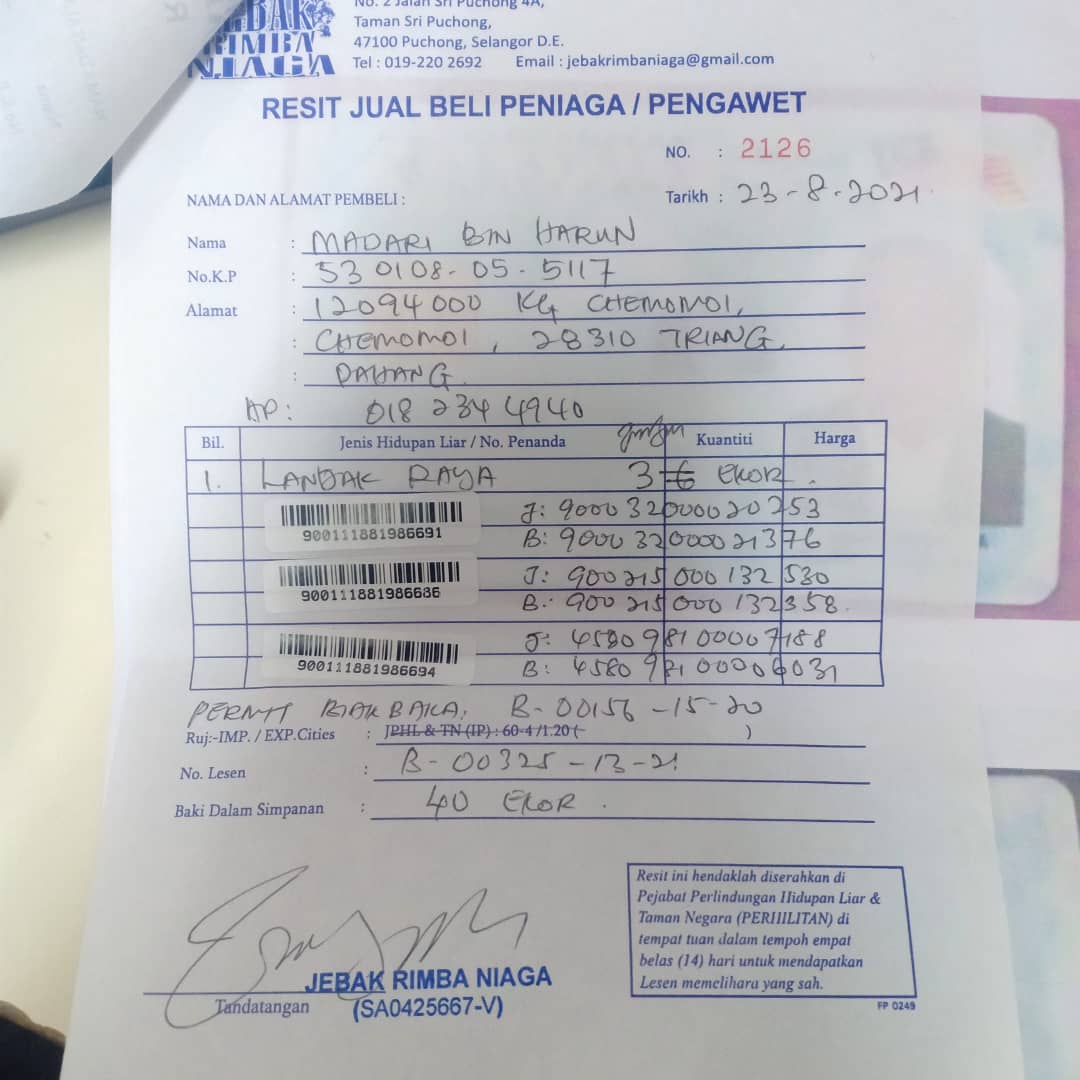 RIMBA
NIAGA
No. 2 Jalan Sri Puchong 4A,
Taman Sri Puchong,
47100 Puchong, Selangor D.E.
Tel : 019-220 2692 Email : jebakrimbaniaga@gmail.com
RESIT JUAL BELI PENIAGA / PENGAWET
NO. : 2126
NAMA DAN ALAMAT PEMBELI :
Tarikh : 23-8-2021.
Nama : MADARI BIN HARUN
No.K.P : 530108-05-5117
Alamat : 12094000 KG CHEMOMOI,
: CHEMOMOI, 28310 TRIANG,
: PAHANG.
HP: 018 234 4940
Bil. Jenis Hidupan Liar / No. Penanda Kuantiti Harga
1. LANDAK RAYA 3 6 EKOR.
J: 900032000020253
900111881986691
B: 900032000021376
J: 900215000132530
900111881986686
B: 900215000132358.
J: 458098100007188
900111881986694
B: 458098100006031
PERMIT BIAK BAKA: B-00156-15-20
Ruj:-IMP. / EXP.Cities : JPHL & TN (IP) : 60-4 /1.20 ( )
No. Lesen : B-00325-13-21
Baki Dalam Simpanan : 40 EKOR.
Resit ini hendaklah diserahkan di
Pejabat Perlindungan Hidupan Liar &
Taman Negara (PERHILITAN) di
tempat tuan dalam tempoh empat
belas (14) hari untuk mendapatkan
Lesen memelihara yang sah.
JEBAK RIMBA NIAGA
Tandatangan (SA0425667-V)
FP 0249